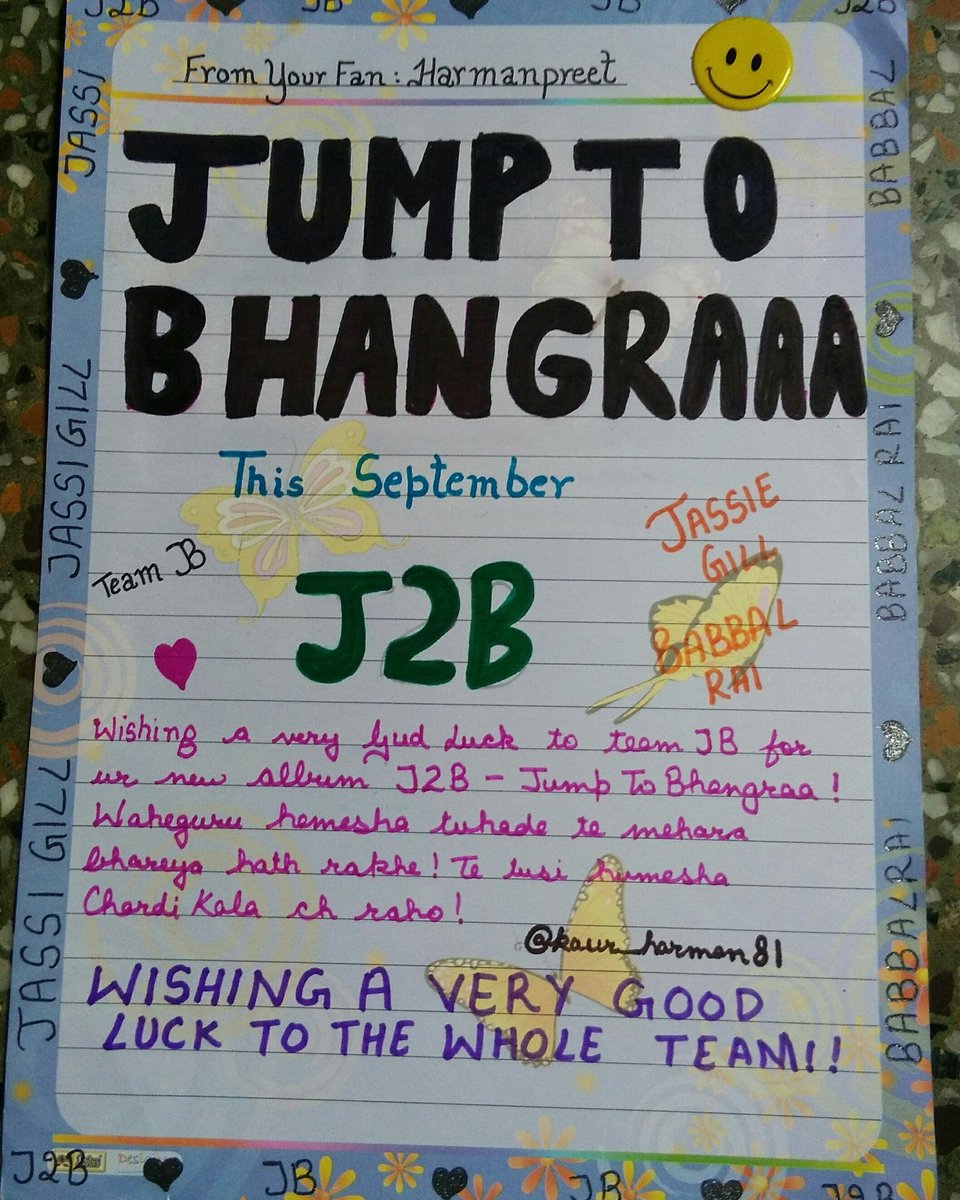 J2B JB JB J2B
From Your Fan: Harmanpreet
JUMP TO
BHANGRAAA
This September
Team JB
J2B
JASSIE
GILL
BABBAL
RAI
Wishing a very Gud Luck to team JB for
ur new album J2B - Jump To Bhangraa!
Waheguru hamesha tuhade te mehara
bhareya hath rakhe! Te tusi humesha
Chardi Kala ch raho!
@kaur_harman81
WISHING A VERY GOOD
LUCK TO THE WHOLE TEAM!!
JASSI
JASSI GILL
JASSI GILL
BABBAL
BABBAL RAI
BABBAL RAI
J2B JB JB J2B